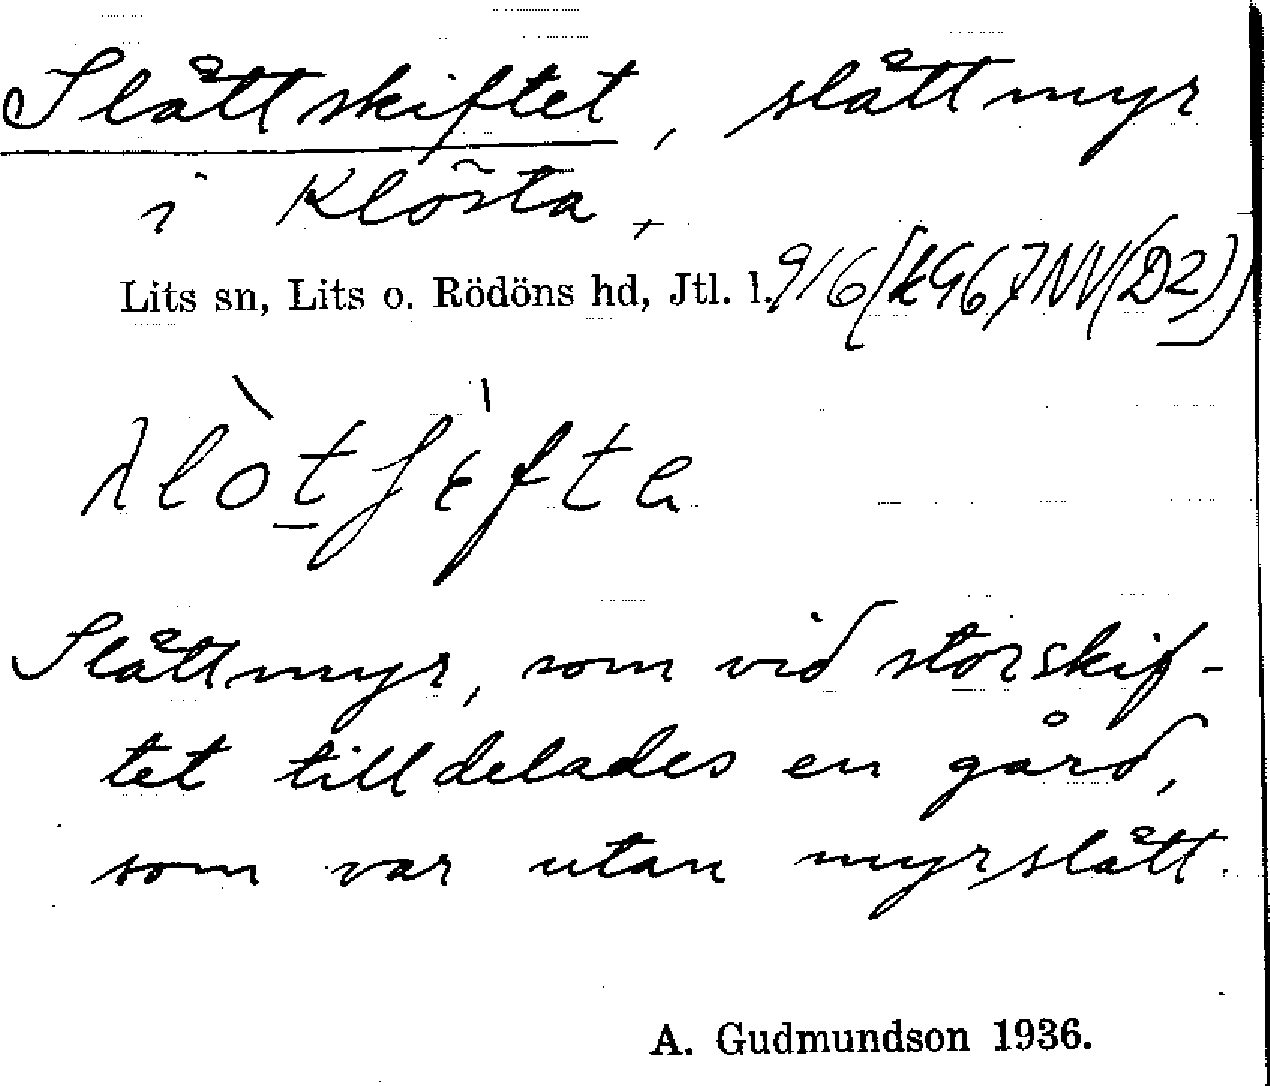 Slåttskiftet, slåttmyr
i Klösta,
Lits sn, Lits o. Rödöns hd, Jtl. l.
Slåttmyr, som vid storskif-
tet tilldelades en gård,
som var utan myrslått.
A. Gudmundson 1936.